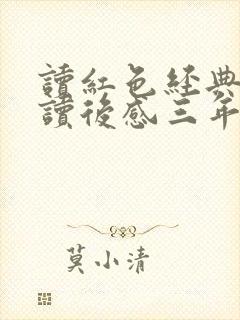 讀紅色經典
讀後感三年
莫小清